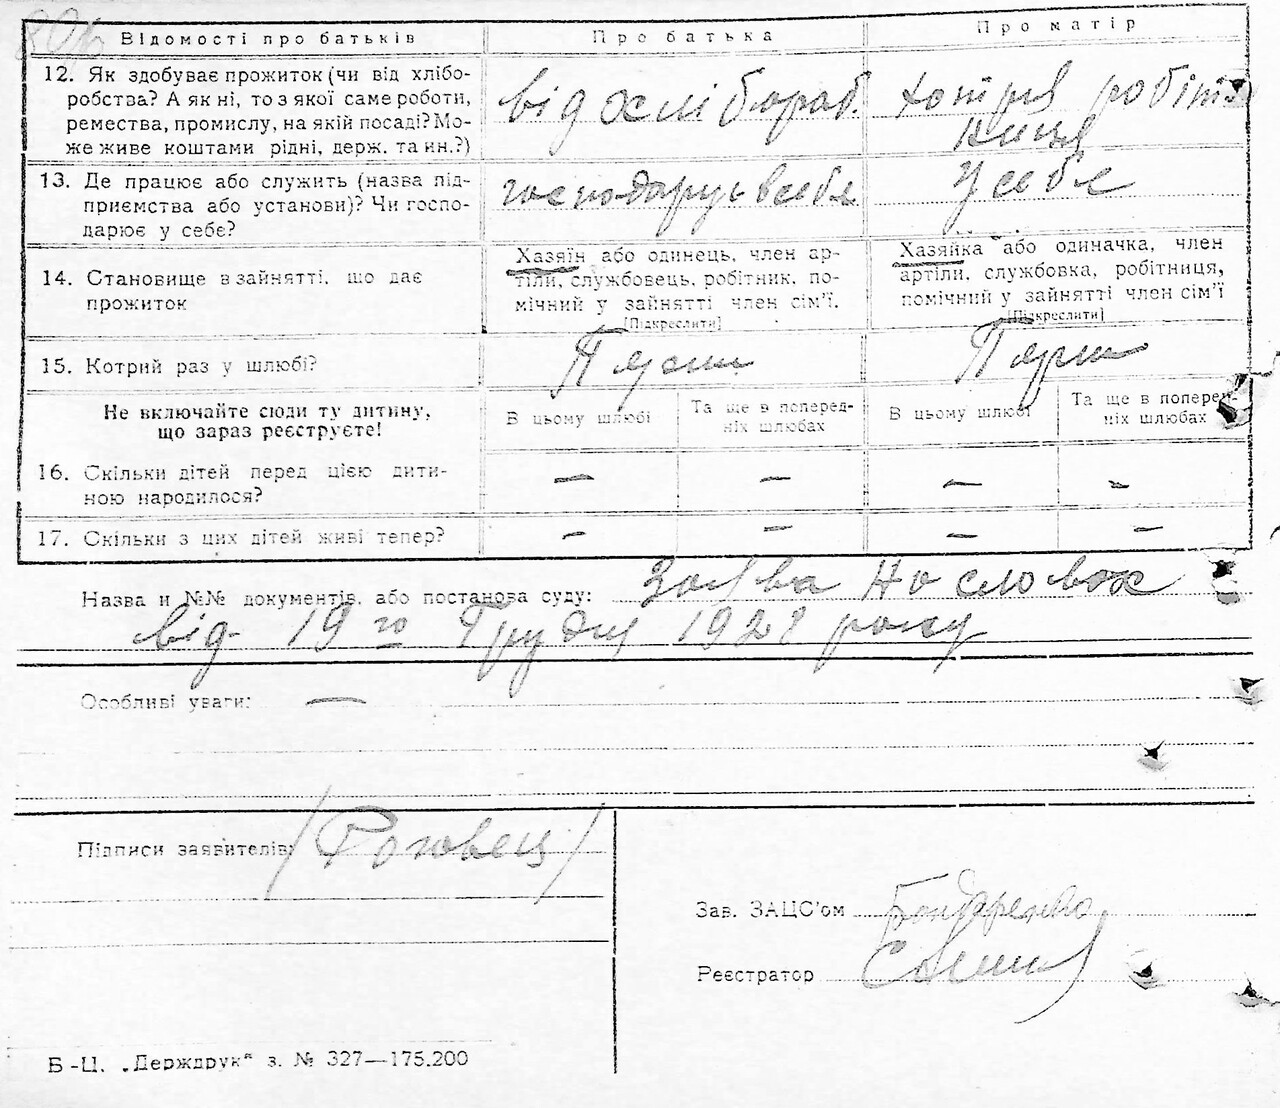 Відомості про батьків
Про батька
Про матір
12. Як здобуває прожиток (чи від хлібо-
робства? А як ні, то з якої саме роботи,
ремества, промислу, на якій посаді? Мо-
же живе коштами рідні, держ. та ин.?)
від
робіт-
ниця
13. Де працює або служить (назва під-
приємства або установи)? Чи госпо-
дарює у себе?
господарує в себе
у себе
14. Становище в зайнятті, що дає
прожиток
Хазяїн або одинець, член ар-
тіли, службовець, робітник, по-
мічний у зайнятті член сім'ї.
[Підкреслити]
Хазяйка або одиначка, член
артіли, службовка, робітниця,
помічний у зайнятті член сім'ї
[Підкреслити]
15. Котрий раз у шлюбі?
Перш
Перш
Не включайте сюди ту дитину,
що зараз реєструєте!
В цьому шлюбі
Та ще в поперед-
ніх шлюбах
В цьому шлюбі
Та ще в поперед-
ніх шлюбах
16. Скільки дітей перед цією дити-
ною народилося?
— — — —
17. Скільки з цих дітей живі тепер?
— — — —
Назва й №№ документів, або постанова суду: Заява на словах
від 19го Грудня 1928 року
Особливі уваги: —
Підписи заявителів: /Роговец/
Зав. ЗАЦС'ом Бондаренко
Реєстратор
Б-Ц. „Держдрук“ з. № 327—175.200